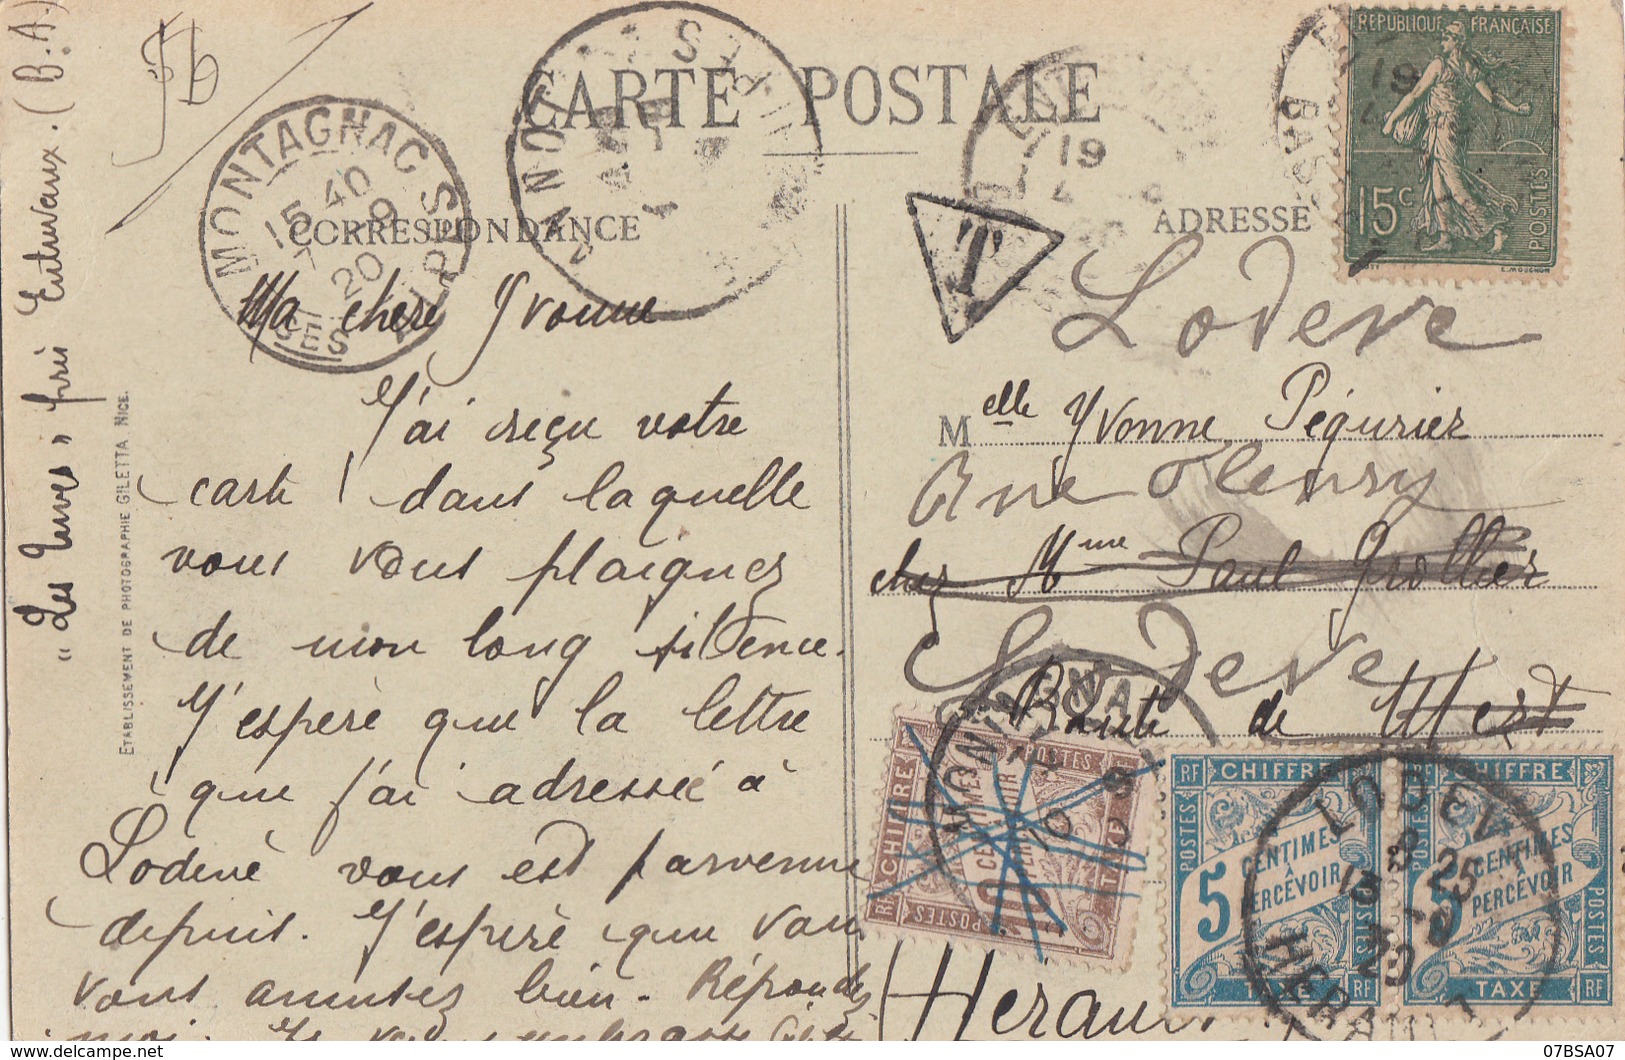 CARTE POSTALE
CORRESPONDANCE
ADRESSE
"Les Tuves" près Entrevaux. (B.A)
ETABLISSEMENT DE PHOTOGRAPHIE GILETTA NICE.
MONTAGNAC S. PRES
15 40
7 - 9
20
BSES ALPES
Ma chère Yvonne
J'ai reçu votre
carte dans laquelle
vous vous plaignez
de mon long silence.
J'espère que la lettre
que j'ai adressée à
Lodève vous est parvenue
depuis. J'espère que vous
vous amusez bien. Répondez
moi. Je vous embrasse
T
REPUBLIQUE FRANÇAISE
15c
POSTES
E. MOUCHON
19
Lodève
Melle Yvonne Pégurier
Rue Fleury
chez Mme Paul Grollier
Lodève
Route de
Hérault
CHIFFRE TAXE
POSTES
RF
10 CENTIMES A PERCEVOIR
MONTAGNAC
RF CHIFFRE
POSTES
5 CENTIMES A PERCEVOIR
TAXE RF
RF CHIFFRE
POSTES
5 CENTIMES A PERCEVOIR
TAXE RF
LODEVE
8 25
13 - 9
20
HERAULT
07BSA07